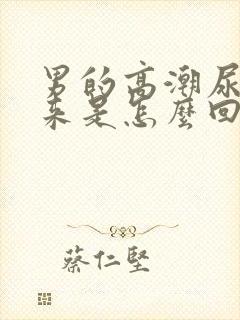 男的高潮尿
来是怎麼回
蔡仁堅